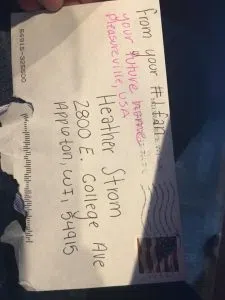 From your #1 fan
your future home
Pleasureville, USA
Heather Strom
2800 E. College Ave
Appleton, WI, 54915